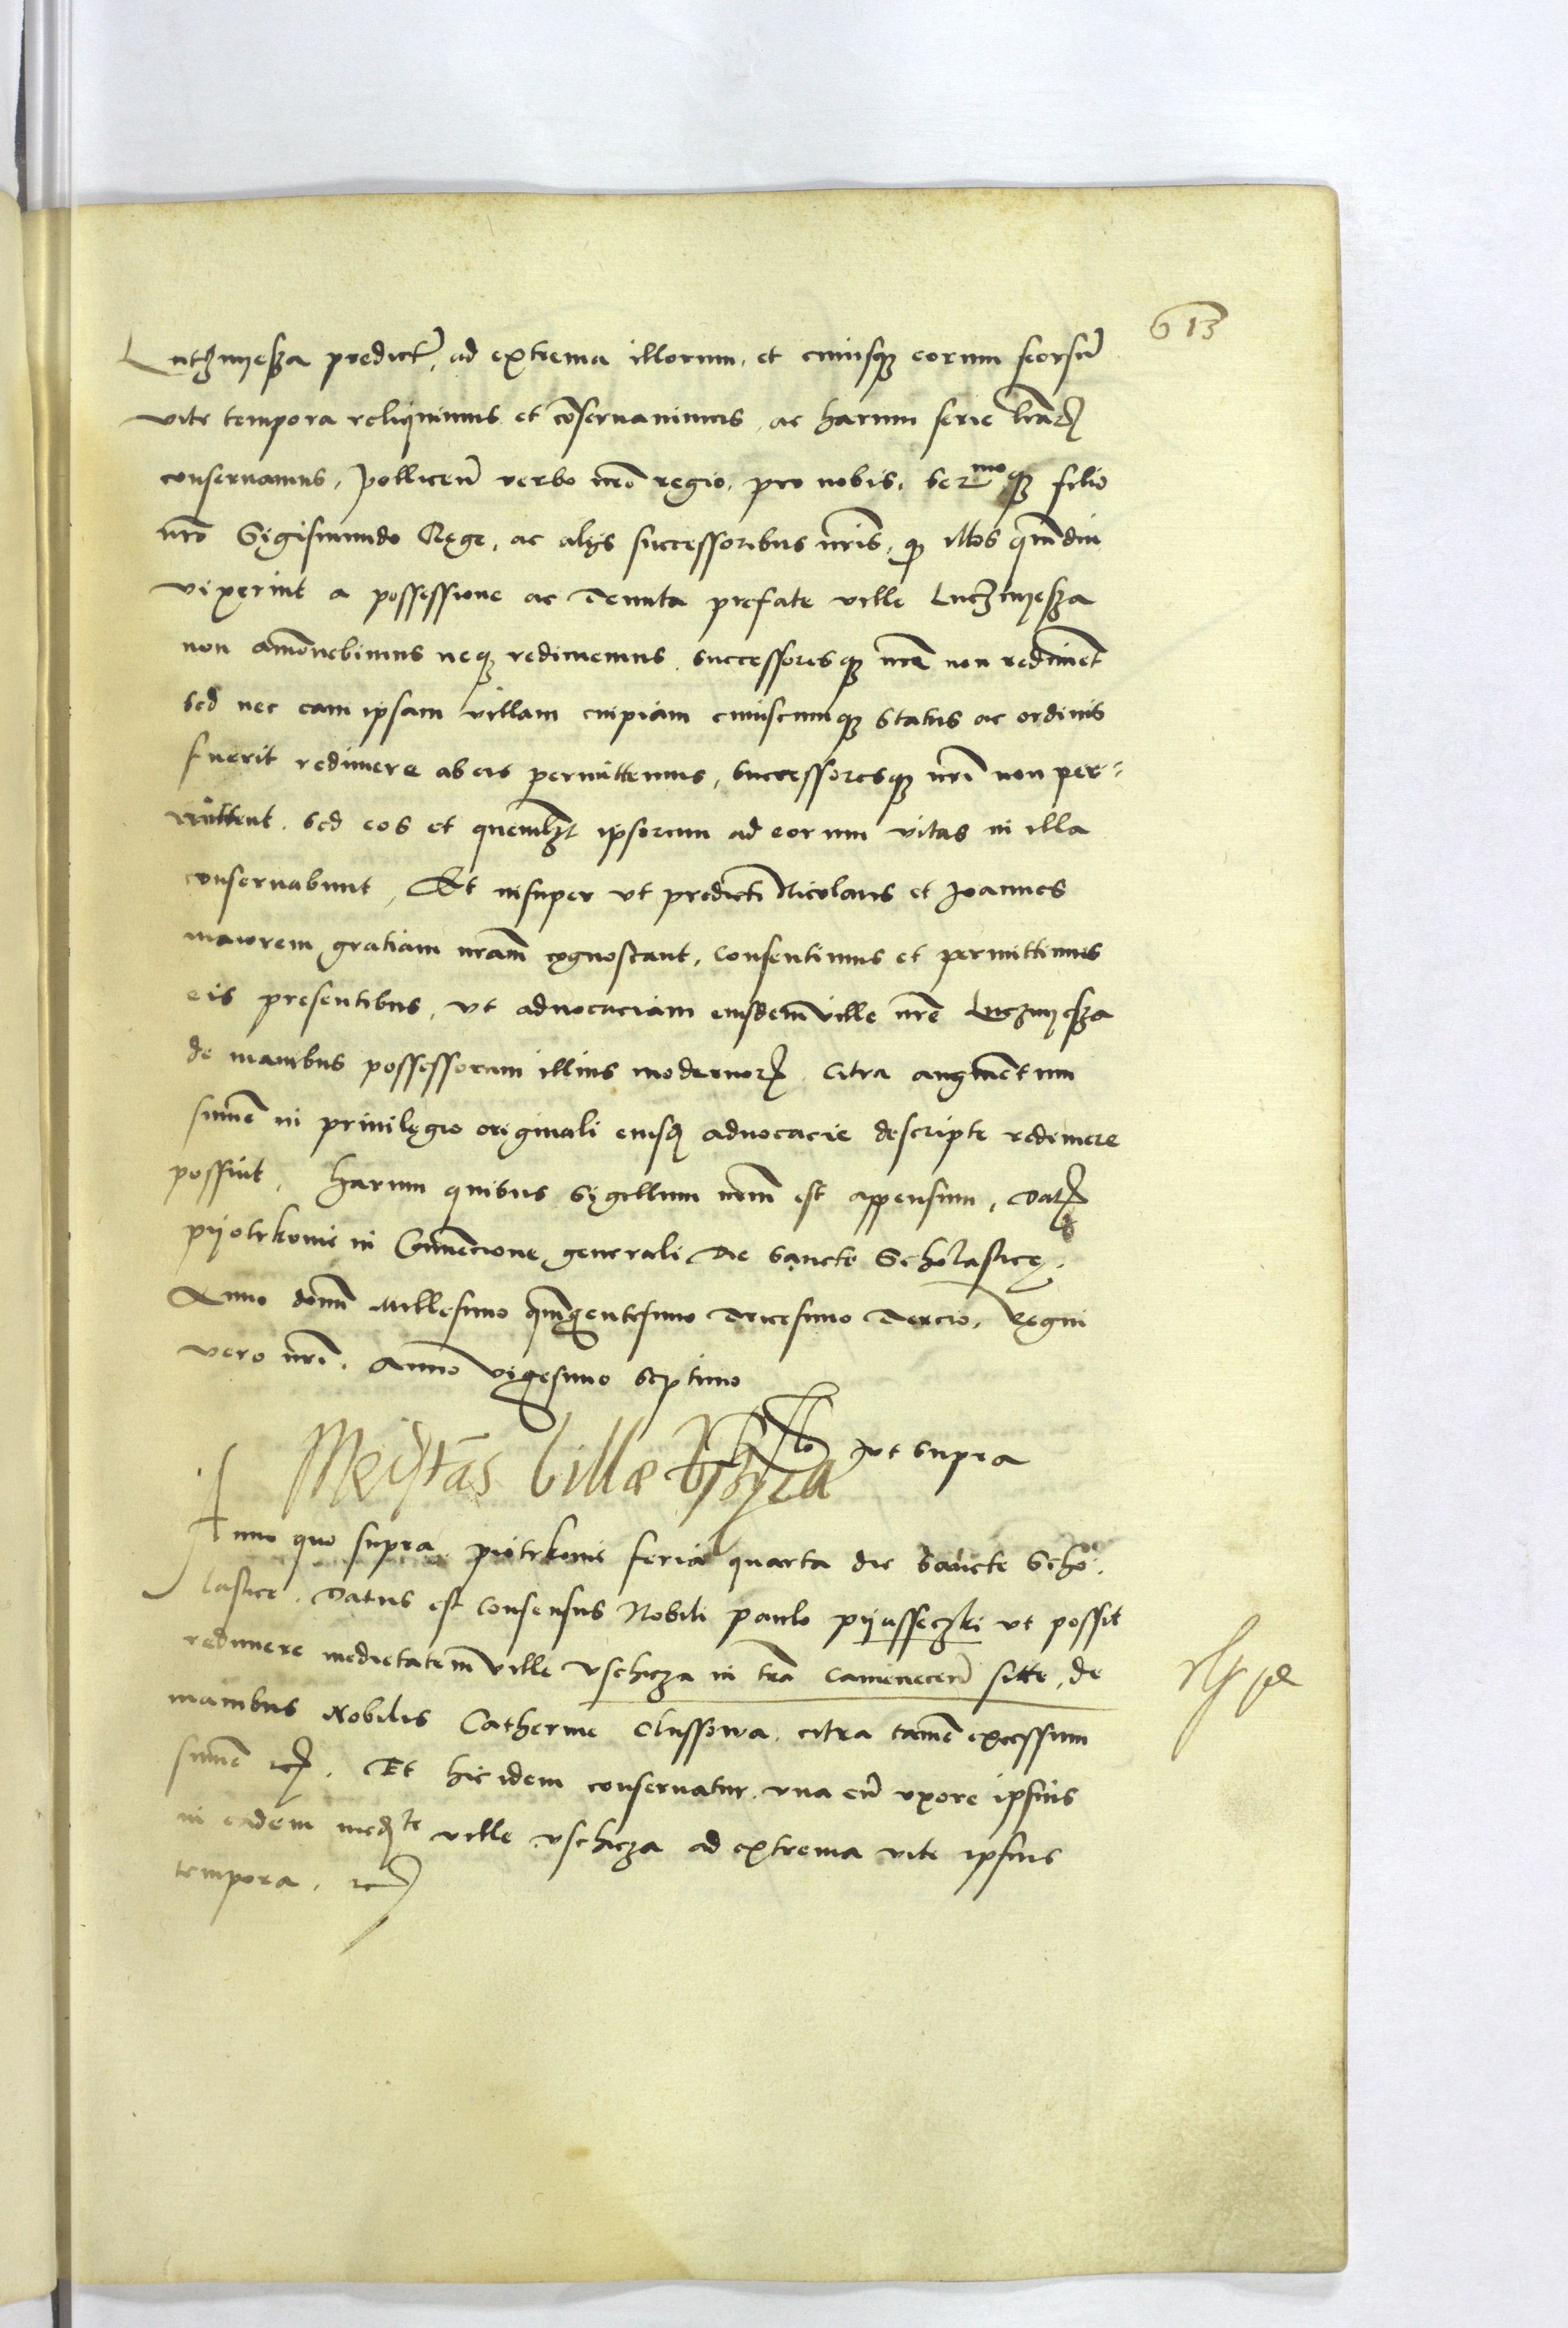 613
Lutzmyessza predict, ad extrema illorum, et cuiusq eorum seorsu
vite tempora reliquimus et coservavimus, ac harum serie lrar
conservamus, Pollicen verbo nro regio, pro nobis, Ser mo q filio
nro Sigismundo Rege, ac alys successoribus nris, q illos qmdiu
vixerint a possessione ac Tenuta prefate ville Luczmyessza
non amovebimus neq redimemus, successoresq nri non rediment
Sed nec eam ipsam villam cuipiam cuiuscumq Status ac ordinis
fuerit redimere ab eis permittemus, Successoresq nri non per-
mittent. Sed eos et quemlzt ipsorum ad eorum vitas in illa
conservabunt, Et insuper ut predicti Nicolaus et Joannes
maiorem gratiam nram cognoscant, Consentimus et permittimus
eis presentibus, ut advocaciam eiusdem ville nre Luczmyessza
de manibus possessorum illius modernor, Citra augmentum
summe in privilegio originali eiusd advocacie descripte redimere
possint, Harum quibus Sigillum nrm est appensum, Dat
pyotrkovie in Convencione generali Die Sancte Scholastice,
Anno domi Millesimo quigentesimo Tricesimo Tercio, Regni
vero nri, Anno vigesimo Septimo
Meditas Villæ ut supra
Anno quo supra, piotrkovie feria quarta die Sancte Scho-
lastice, Datus est Consensus Nobili paulo pyasseczki ut possit
redimere medietatem ville Uschicza in tra Camenecen sitte, de
manibus Nobilis Catherine Olussowa, citra tame excessum
summe etc, Et hic idem conservatur, una cu uxore ipsius
in eadem med te ville Uschicza ad extrema vite ipsius
tempora, etc